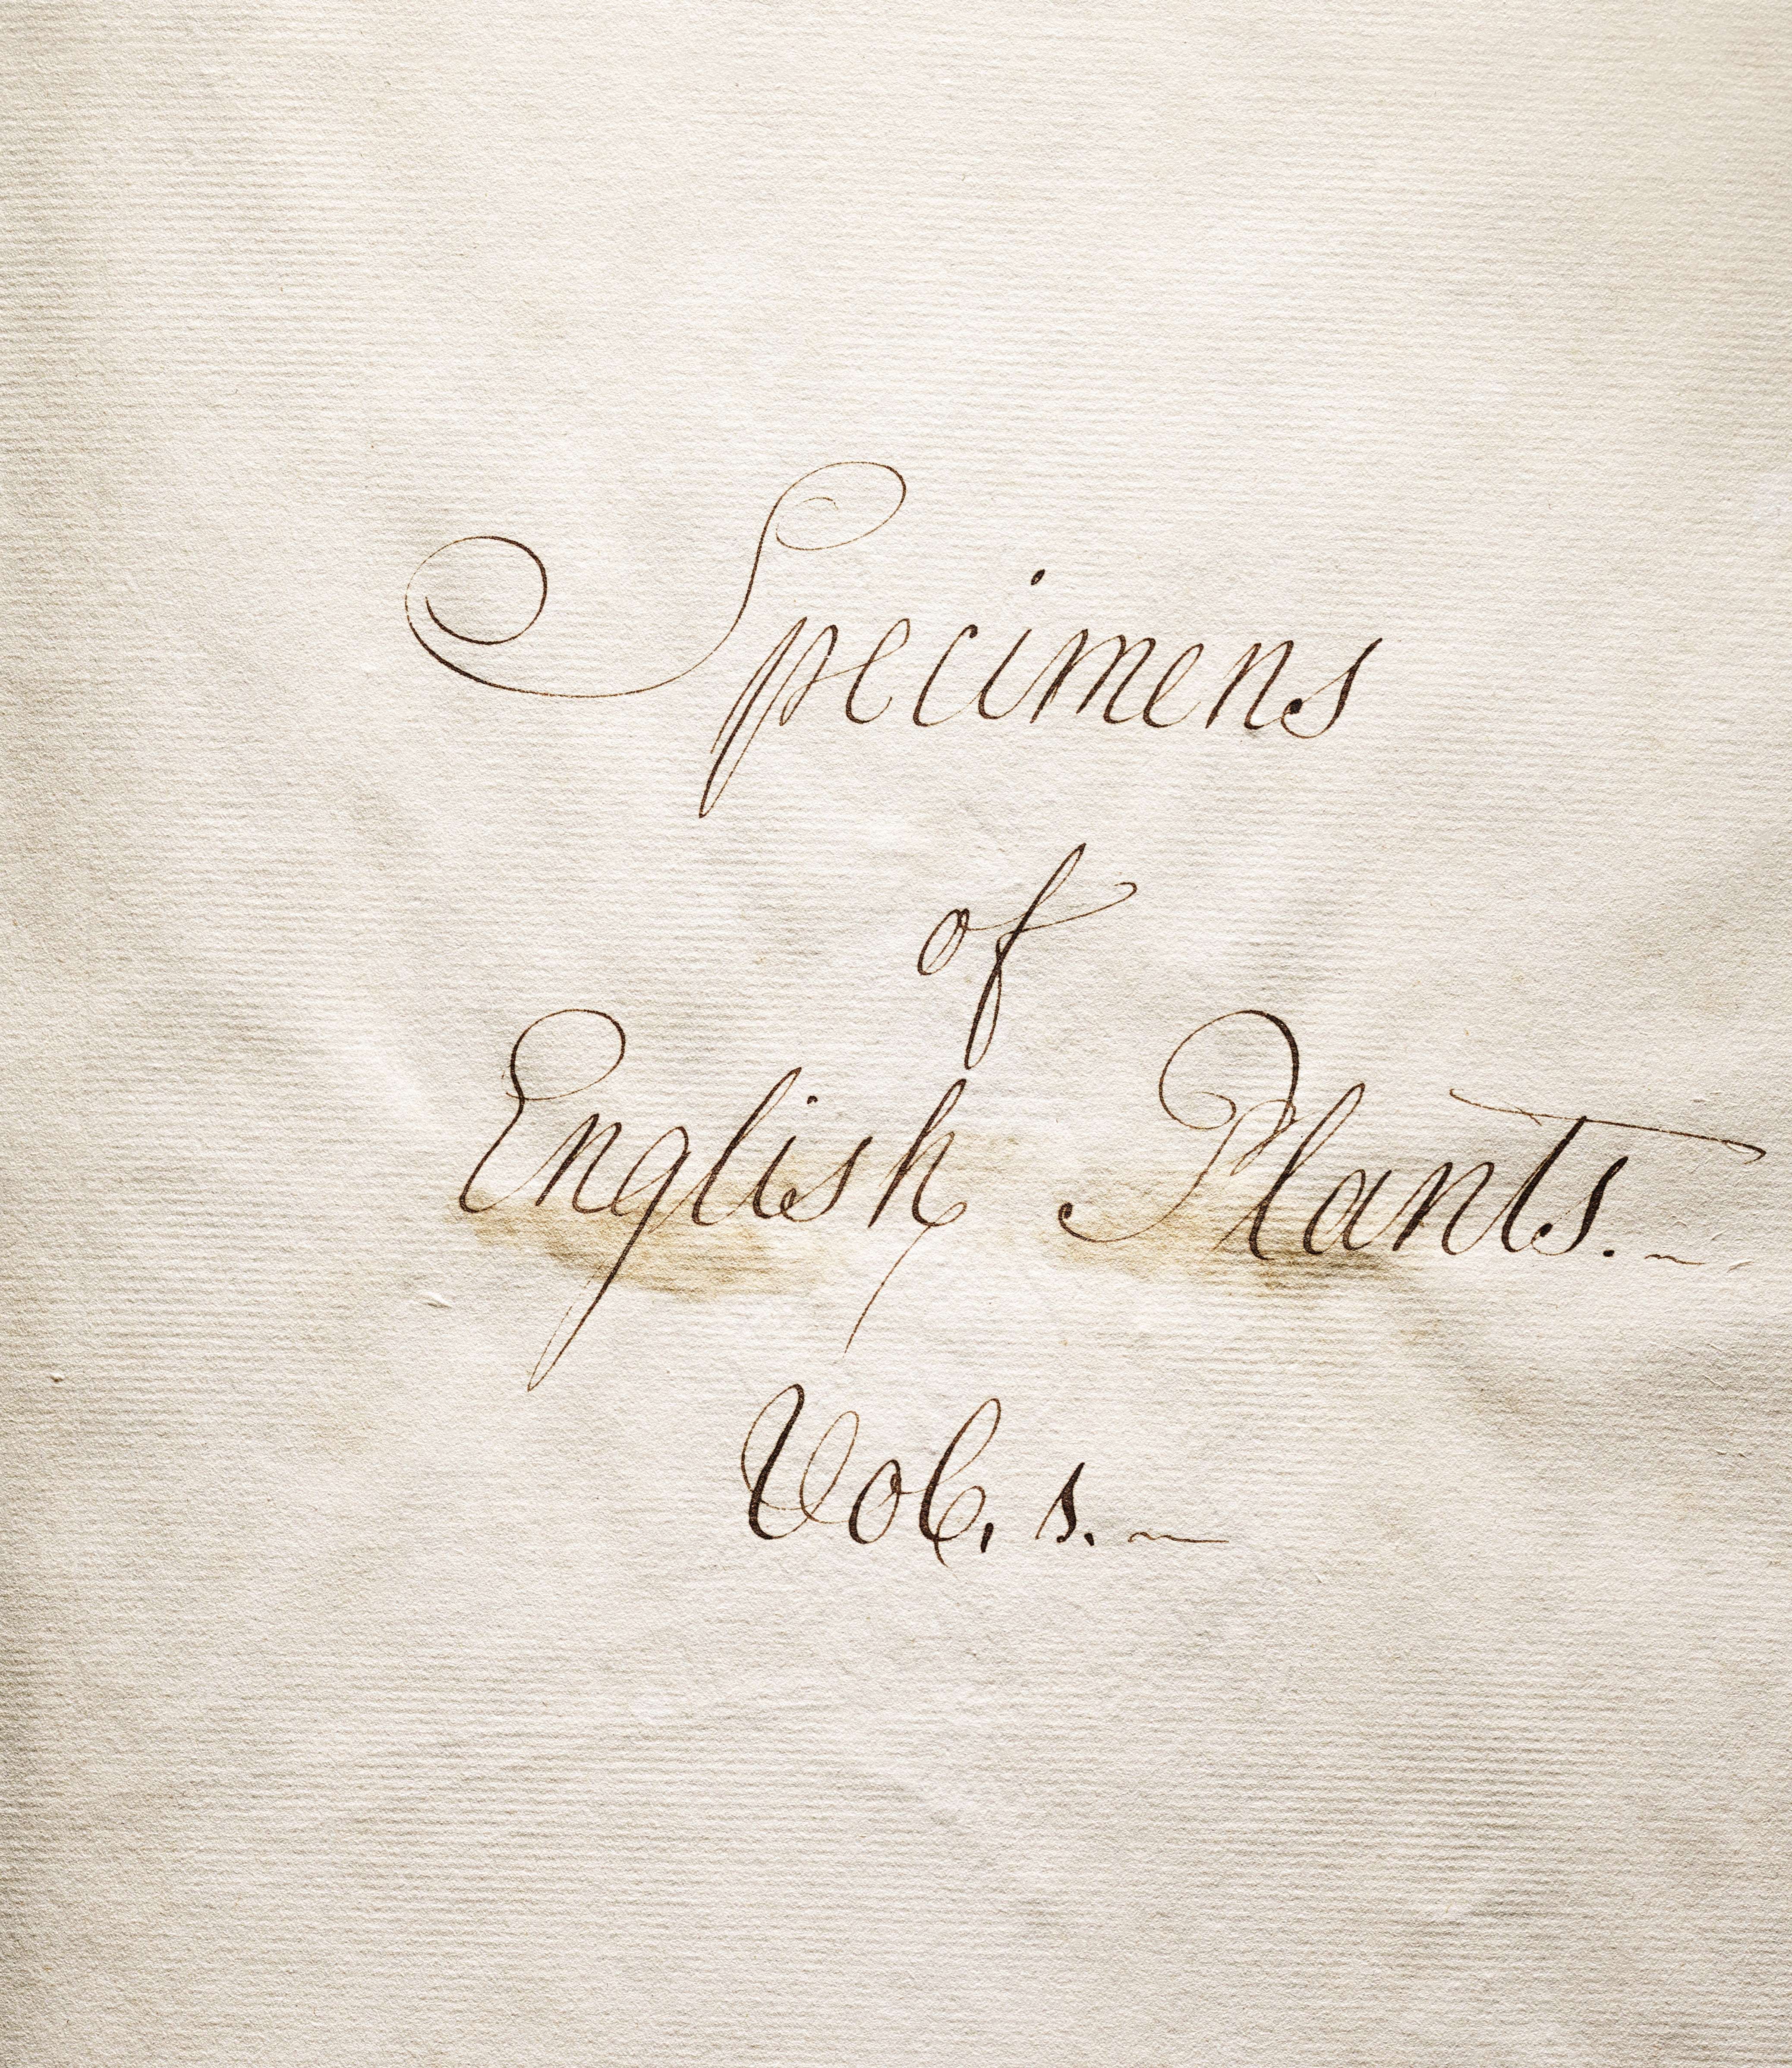 Specimens
of
English Plants.~
Vol. s.~